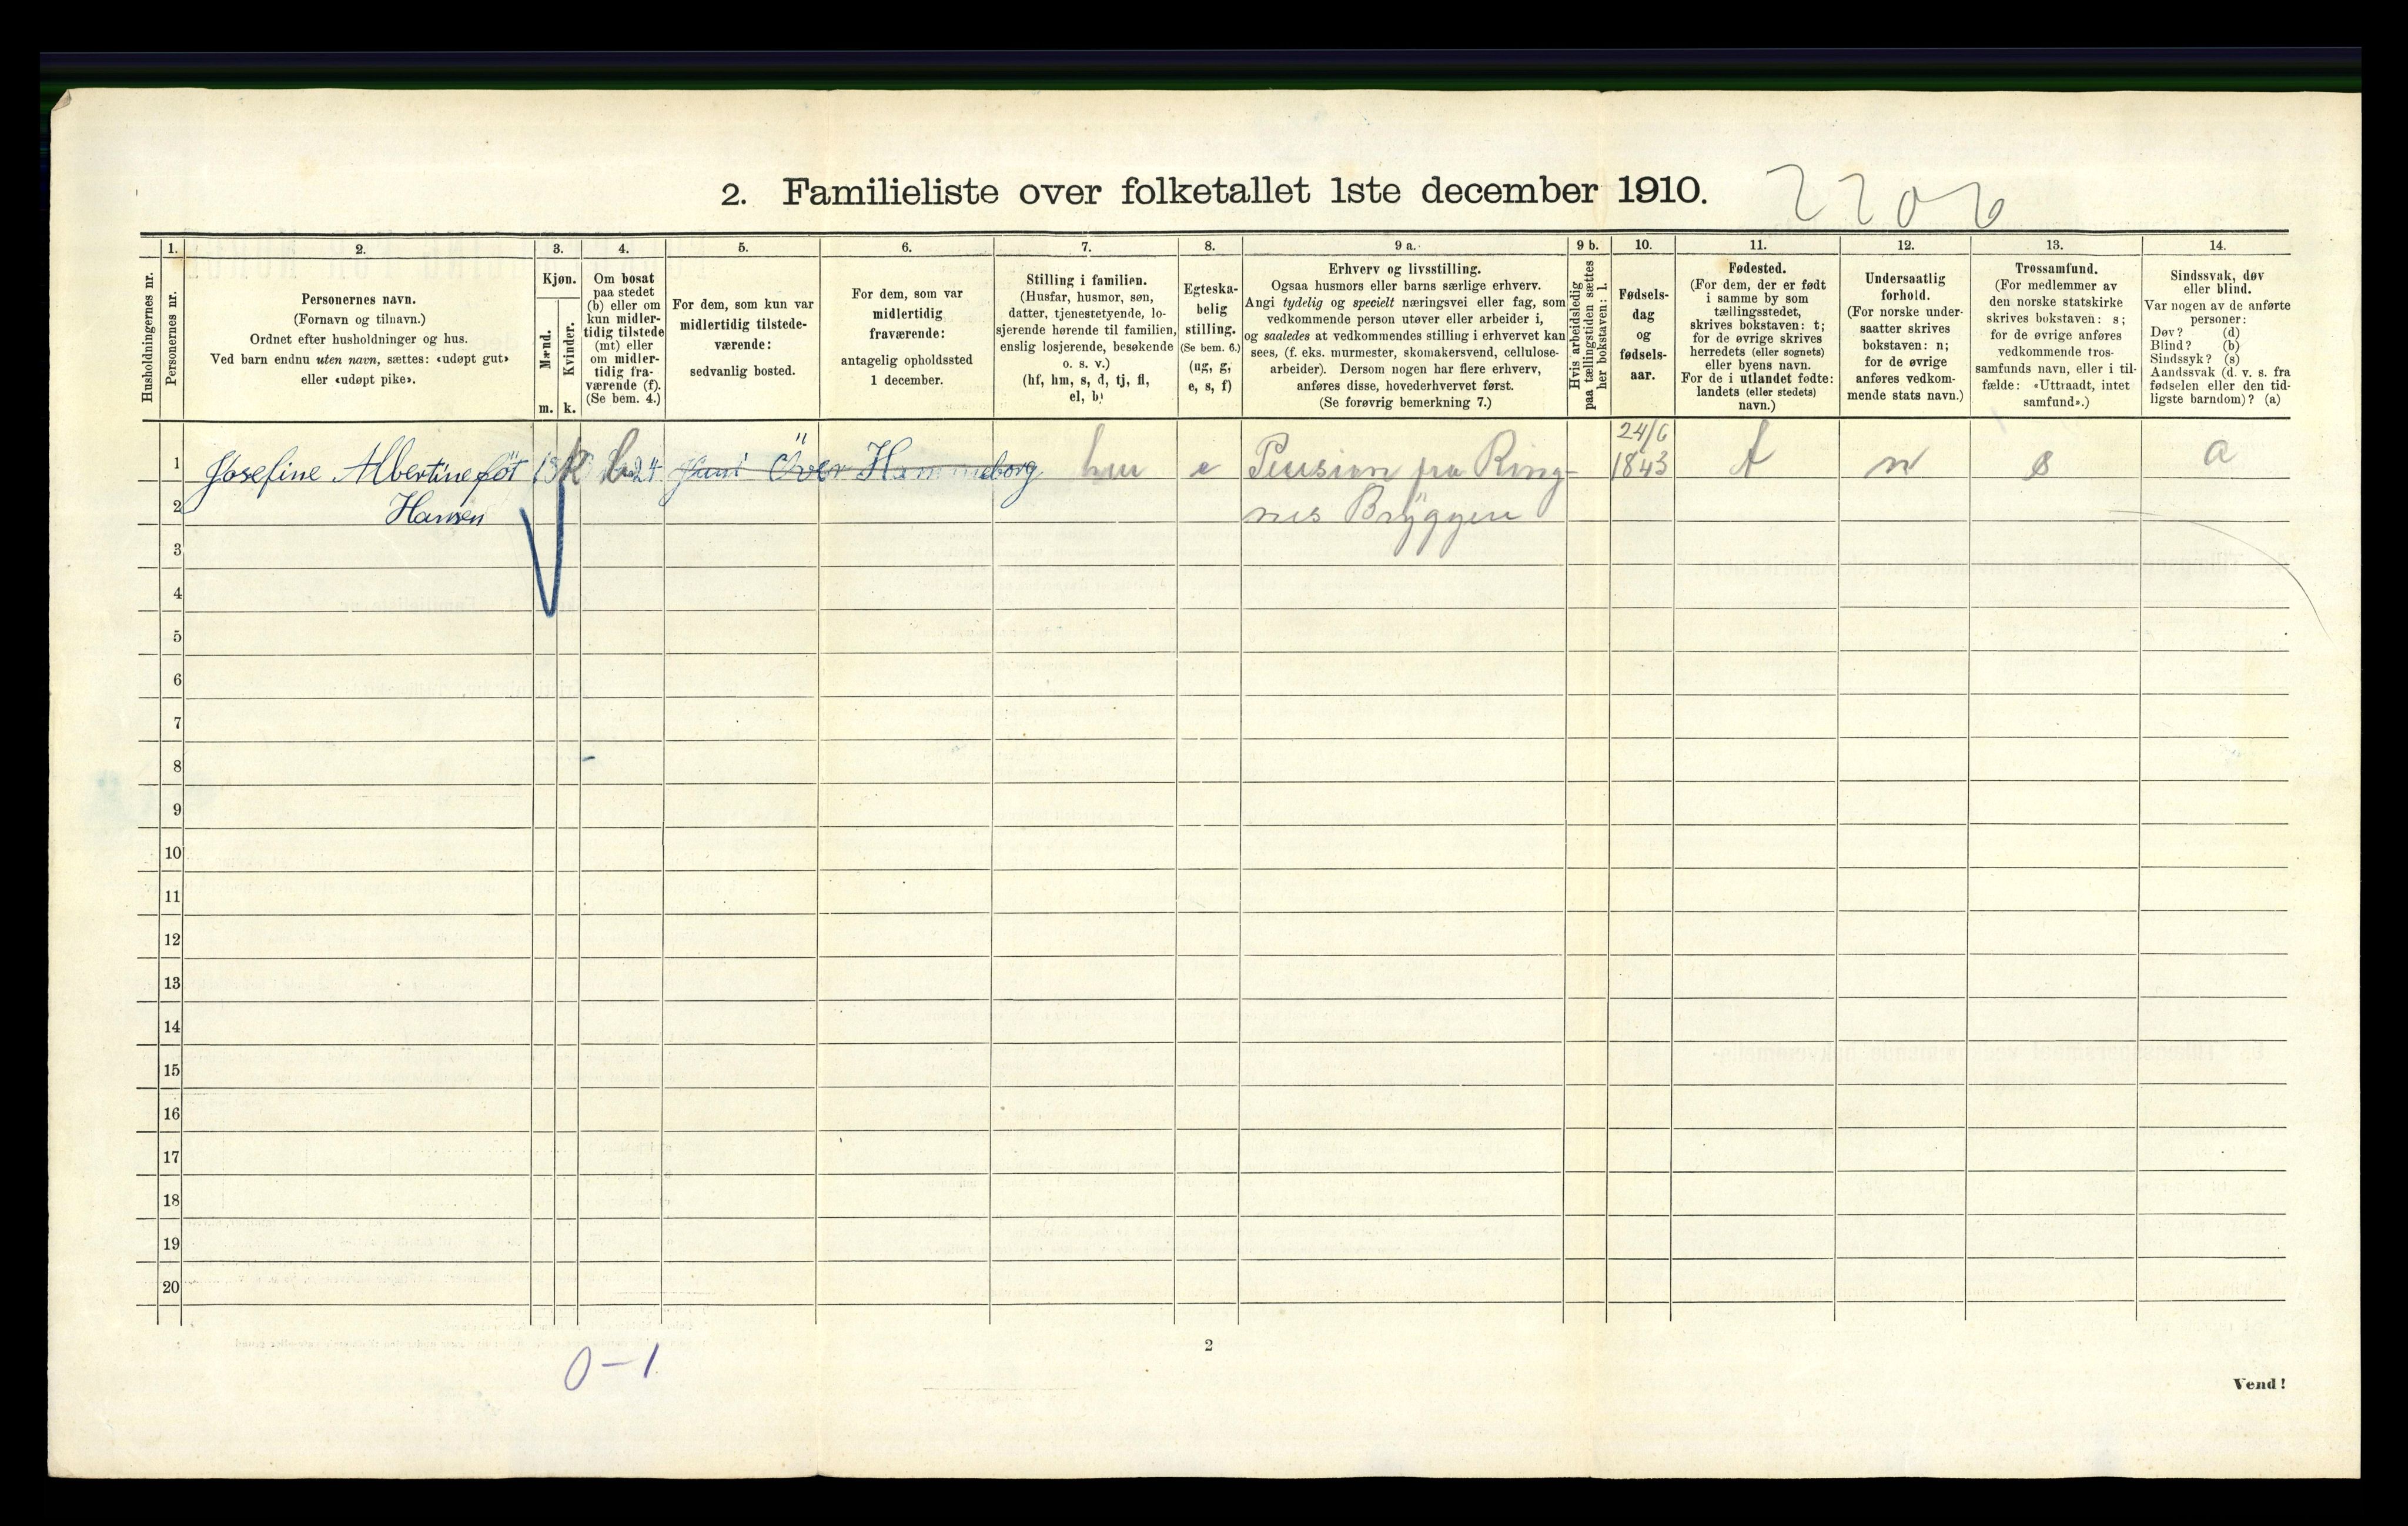 2. Familieliste over folketallet 1ste december 1910. 2206
Husholdningernes nr.
1.
Personernes nr.
2.
Personernes navn.
(Fornavn og tilnavn.)
Ordnet efter husholdninger og hus.
Ved barn endnu uten navn, sættes: «udøpt gut»
eller «udøpt pike».
3.
Kjøn.
Mænd.
m.
Kvinder.
k.
4.
Om bosat
paa stedet
(b) eller om
kun midler-
tidig tilstede
(mt) eller
om midler-
tidig fra-
værende (f).
(Se bem. 4.)
5.
For dem, som kun var
midlertidig tilstede-
værende:
sedvanlig bosted.
6.
For dem, som var
midlertidig
fraværende:
antagelig opholdssted
1 december.
7.
Stilling i familien.
(Husfar, husmor, søn,
datter, tjenestetyende, lo-
sjerende hørende til familien,
enslig losjerende, besøkende
o. s. v.)
(hf, hm, s, d, tj, fl,
el, b)
8.
Egteska-
belig
stilling.
(Se bem. 6.)
(ug, g,
e, s, f)
9 a.
Erhverv og livsstilling.
Ogsaa husmors eller barns særlige erhverv.
Angi tydelig og specielt næringsvei eller fag, som
vedkommende person utøver eller arbeider i,
og saaledes at vedkommendes stilling i erhvervet kan
sees, (f. eks. murmester, skomakersvend, cellulose-
arbeider). Dersom nogen har flere erhverv,
anføres disse, hovederhvervet først.
(Se forøvrig bemerkning 7.)
9 b.
Hvis arbeidsledig
paa tællingstiden sættes
her bokstaven: l.
10.
Fødsels-
dag
og
fødsels-
aar.
11.
Fødested.
(For dem, der er født
i samme by som
tællingsstedet,
skrives bokstaven: t;
for de øvrige skrives
herredets (eller sognets)
eller byens navn.
For de i utlandet fødte:
landets (eller stedets)
navn.)
12.
Undersaatlig
forhold.
(For norske under-
saatter skrives
bokstaven: n;
for de øvrige
anføres vedkom-
mende stats navn.)
13.
Trossamfund.
(For medlemmer av
den norske statskirke
skrives bokstaven: s;
for de øvrige anføres
vedkommende tros-
samfunds navn, eller i til-
fælde: «Uttraadt, intet
samfund».)
14.
Sindssvak, døv
eller blind.
Var nogen av de anførte
personer:
Døv? (d)
Blind? (b)
Sindssyk? (s)
Aandssvak (d. v. s. fra
fødselen eller den tid-
ligste barndom)? (a)
24/6
1 Josefine Albertine föt k b 24 Juni Över Hammerborg hm e Pension fra Ring- 1843 t n s a
2 Hansen nes Bryggeri
3
4
5
6
7
8
9
10
11
12
13
14
15
16
17
18
19
20
2
0-1
Vend!